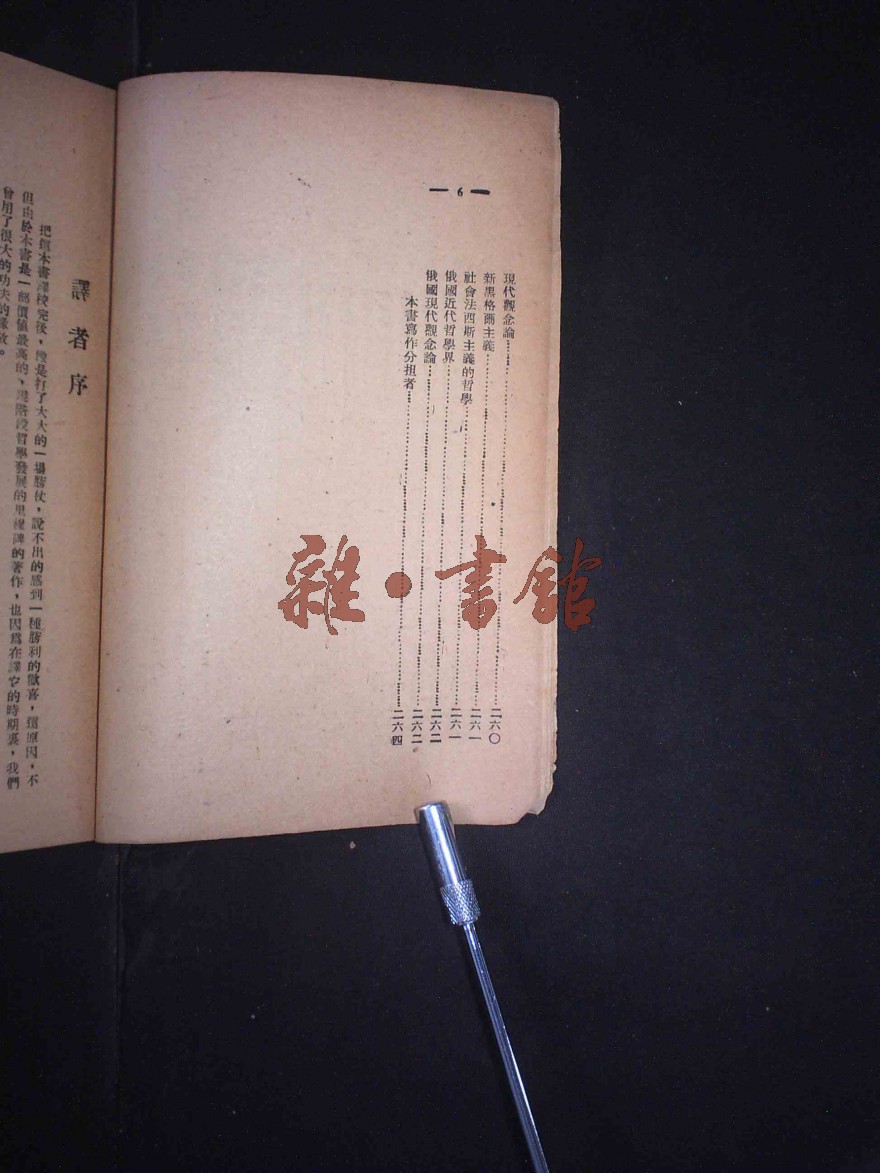 — 6 —
現代觀念論……二六〇
新黑格爾主義……二六一
社會法西斯主義的哲學……二六一
俄國近代哲學界……二六二
俄國現代觀念論……二六二
本書寫作分担者……二六四
譯者序
把這本書譯校完後，像是打了大大的一場勝仗，說不出的感到一種勝利的歡喜，這原因，不
但由於本書是一部價值最高的、現階段哲學發展的里程碑的著作，也因爲在譯它的時期裏，我們
曾用了很大的功夫的緣故。
雜·書館